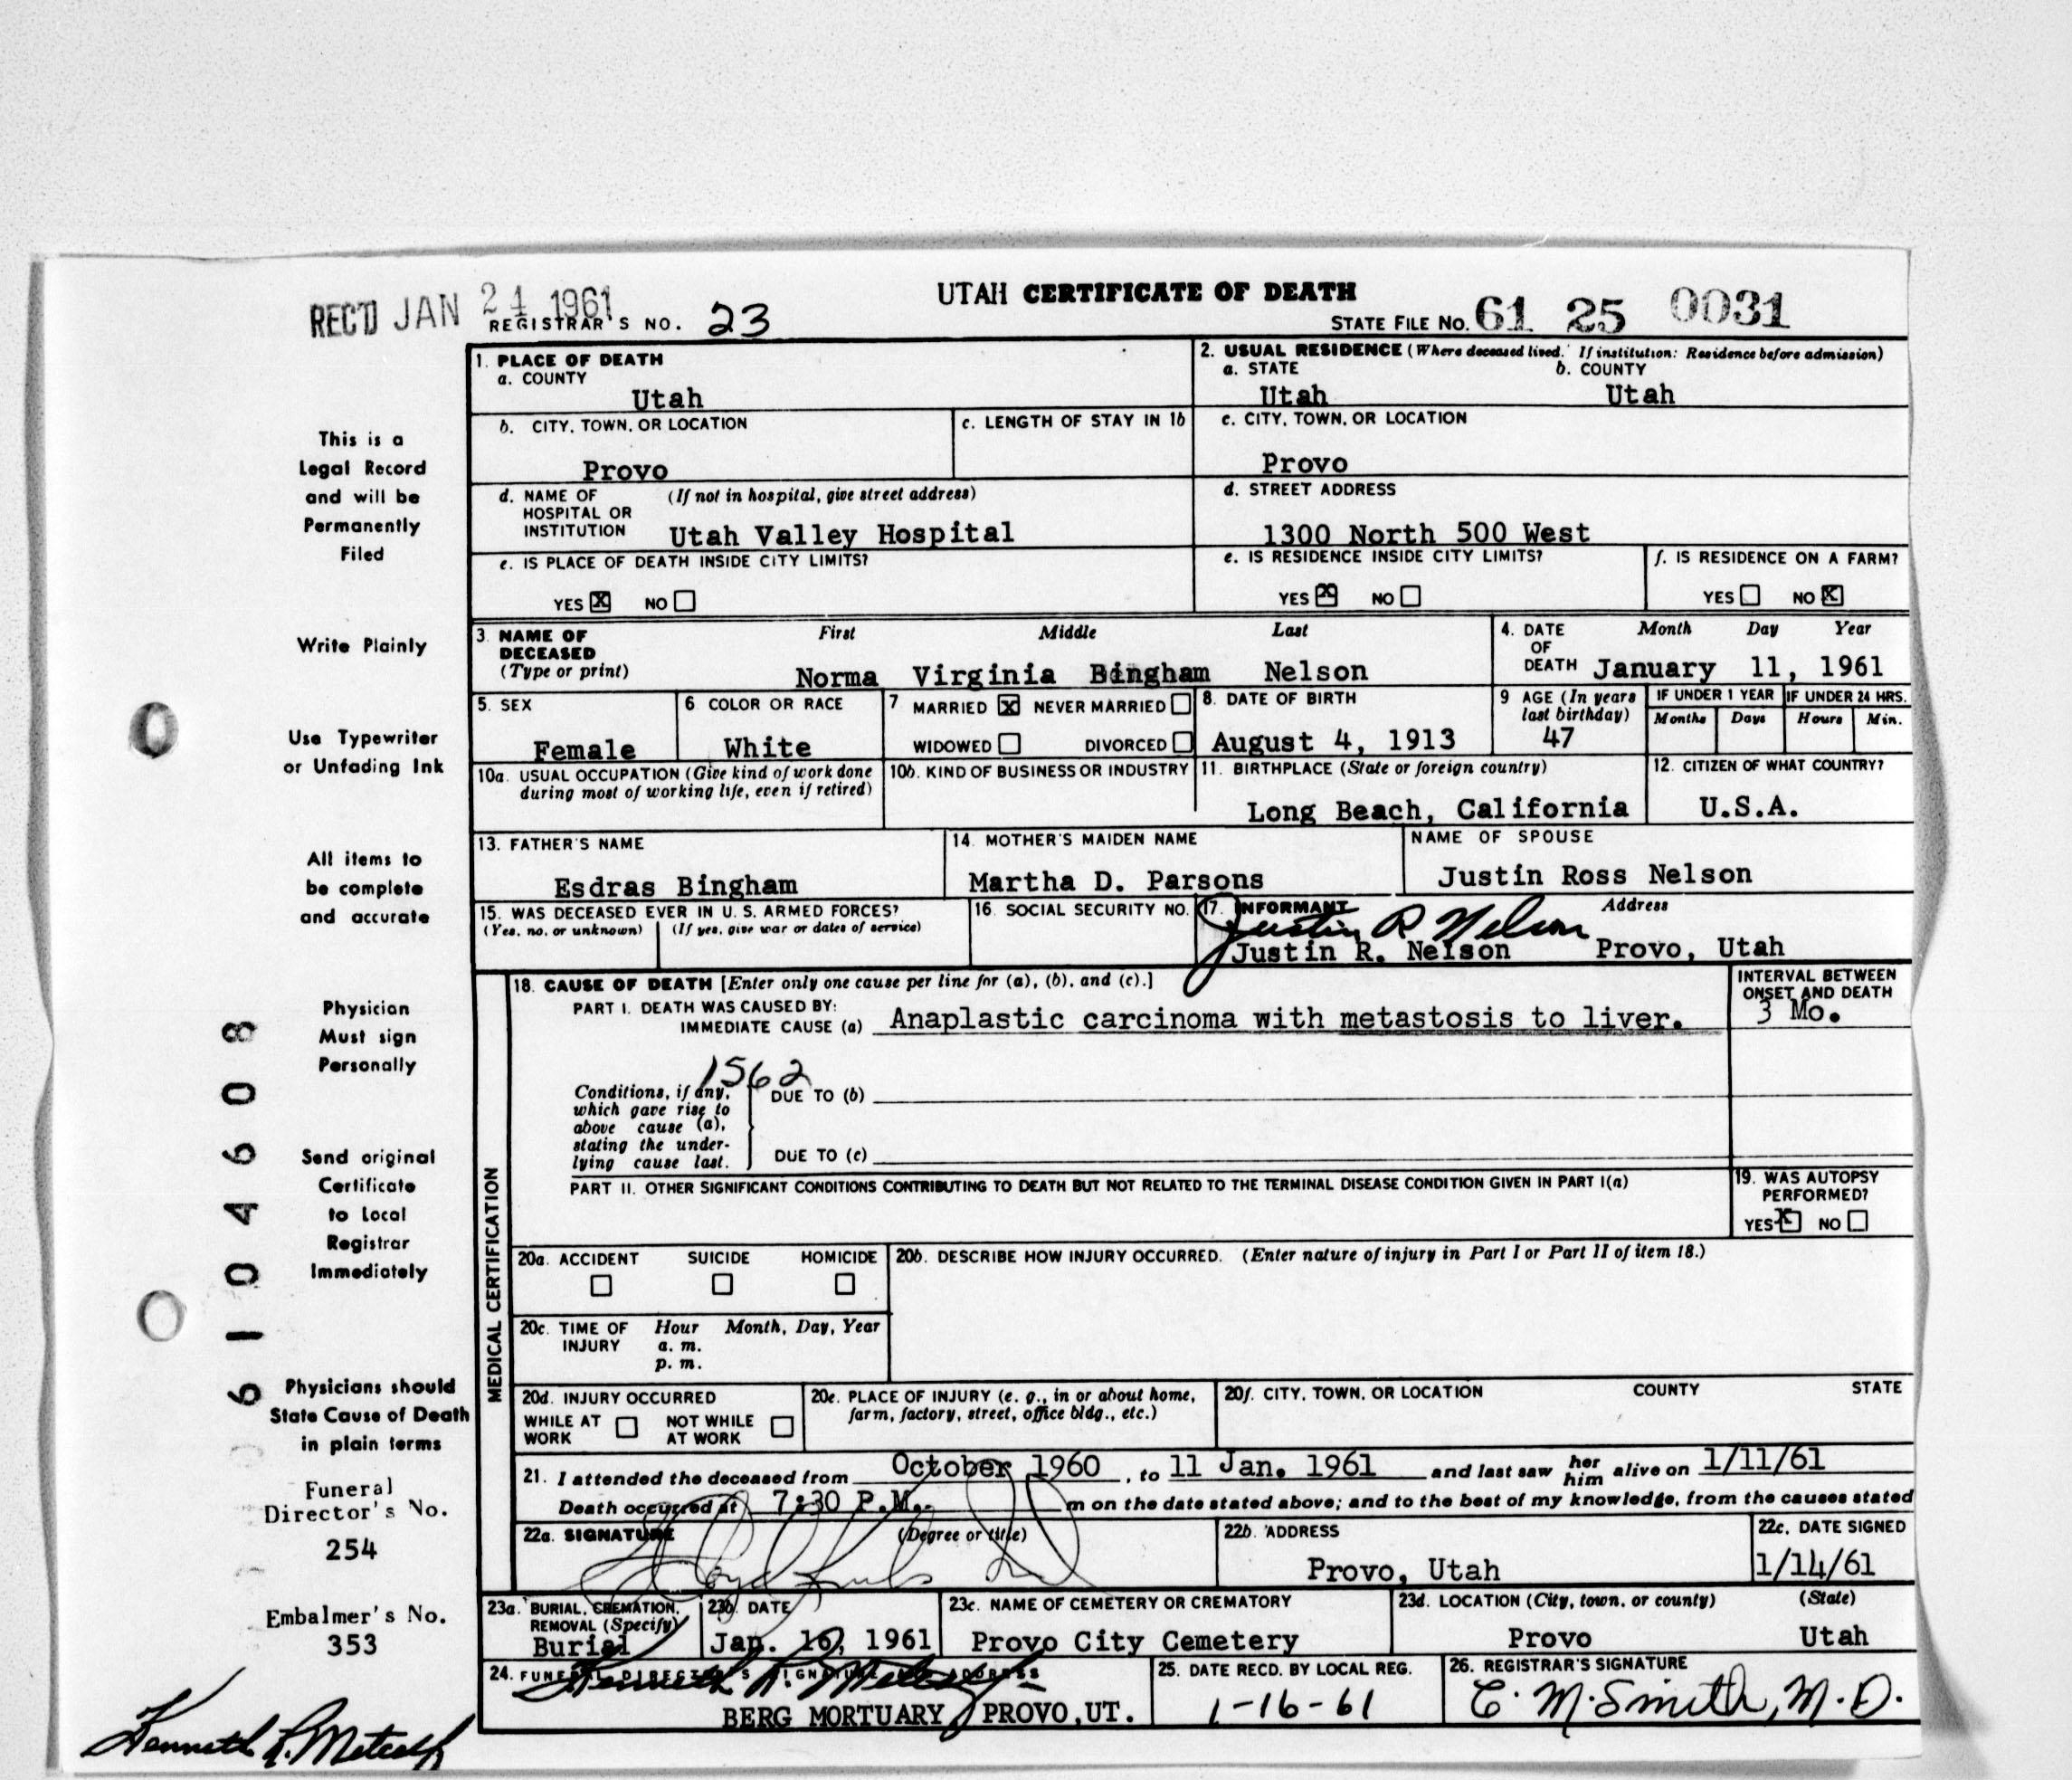 UTAH CERTIFICATE OF DEATH
REC'D JAN 24 1961
REGISTRAR'S NO. 23
STATE FILE No. 61 25 0031
1. PLACE OF DEATH
a. COUNTY
Utah
2. USUAL RESIDENCE (Where deceased lived. If institution: Residence before admission)
a. STATE b. COUNTY
Utah Utah
b. CITY, TOWN, OR LOCATION
Provo
c. LENGTH OF STAY IN 1b
c. CITY, TOWN, OR LOCATION
Provo
d. NAME OF (If not in hospital, give street address)
HOSPITAL OR
INSTITUTION Utah Valley Hospital
d. STREET ADDRESS
1300 North 500 West
e. IS PLACE OF DEATH INSIDE CITY LIMITS?
YES X NO
e. IS RESIDENCE INSIDE CITY LIMITS?
YES X NO
f. IS RESIDENCE ON A FARM?
YES NO X
3. NAME OF First Middle Last
DECEASED
(Type or print) Norma Virginia Bingham Nelson
4. DATE Month Day Year
OF
DEATH January 11, 1961
5. SEX
Female
6 COLOR OR RACE
White
7 MARRIED X NEVER MARRIED
WIDOWED DIVORCED
8. DATE OF BIRTH
August 4, 1913
9 AGE (In years
last birthday)
47
IF UNDER 1 YEAR IF UNDER 24 HRS.
Months Days Hours Min.
10a. USUAL OCCUPATION (Give kind of work done
during most of working life, even if retired)
10b. KIND OF BUSINESS OR INDUSTRY
11. BIRTHPLACE (State or foreign country)
Long Beach, California
12. CITIZEN OF WHAT COUNTRY?
U.S.A.
13. FATHER'S NAME
Esdras Bingham
14. MOTHER'S MAIDEN NAME
Martha D. Parsons
NAME OF SPOUSE
Justin Ross Nelson
15. WAS DECEASED EVER IN U. S. ARMED FORCES?
(Yes, no, or unknown) (If yes, give war or dates of service)
16. SOCIAL SECURITY NO.
17. INFORMANT Address
Justin R Nelson
Justin R. Nelson Provo, Utah
MEDICAL CERTIFICATION
18. CAUSE OF DEATH [Enter only one cause per line for (a), (b), and (c).]
PART I. DEATH WAS CAUSED BY:
IMMEDIATE CAUSE (a) Anaplastic carcinoma with metastosis to liver.
INTERVAL BETWEEN
ONSET AND DEATH
3 Mo.
1562
Conditions, if any,
which gave rise to
above cause (a),
stating the under-
lying cause last.
DUE TO (b)
DUE TO (c)
PART II. OTHER SIGNIFICANT CONDITIONS CONTRIBUTING TO DEATH BUT NOT RELATED TO THE TERMINAL DISEASE CONDITION GIVEN IN PART I(a)
19. WAS AUTOPSY
PERFORMED?
YES X NO
20a. ACCIDENT SUICIDE HOMICIDE
20b. DESCRIBE HOW INJURY OCCURRED. (Enter nature of injury in Part I or Part II of item 18.)
20c. TIME OF Hour Month, Day, Year
INJURY a. m.
p. m.
20d. INJURY OCCURRED
WHILE AT NOT WHILE
WORK AT WORK
20e. PLACE OF INJURY (e. g., in or about home,
farm, factory, street, office bldg., etc.)
20f. CITY, TOWN, OR LOCATION COUNTY STATE
21. I attended the deceased from October 1960, to 11 Jan. 1961 and last saw her him alive on 1/11/61
Death occurred at 7:30 P.M. m on the date stated above; and to the best of my knowledge, from the causes stated
22a. SIGNATURE (Degree or title)
22b. ADDRESS
Provo, Utah
22c. DATE SIGNED
1/14/61
23a. BURIAL, CREMATION,
REMOVAL (Specify)
Burial
23b. DATE
Jan. 16, 1961
23c. NAME OF CEMETERY OR CREMATORY
Provo City Cemetery
23d. LOCATION (City, town, or county) (State)
Provo Utah
24. FUNERAL DIRECTOR'S SIGNATURE AND ADDRESS
Kenneth R. Metcalf
BERG MORTUARY PROVO, UT.
25. DATE RECD. BY LOCAL REG.
1-16-61
26. REGISTRAR'S SIGNATURE
C. M. Smith, M.D.
This is a
Legal Record
and will be
Permanently
Filed
Write Plainly
Use Typewriter
or Unfading Ink
All items to
be complete
and accurate
Physician
Must sign
Personally
Send original
Certificate
to Local
Registrar
Immediately
Physicians should
State Cause of Death
in plain terms
Funeral
Director's No.
254
Embalmer's No.
353
Kenneth R. Metcalf
6104608